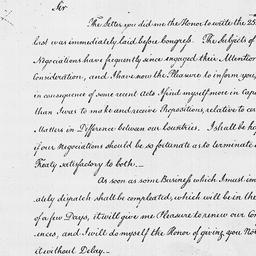 Sir
The Letter you did me the Honor to write the 25
last was immediately laid before Congress. The Subjects of
Negociations have frequently since engaged their Attention
Consideration, and I have now the Pleasure to inform you,
in consequence of some recent Acts I find myself more in Capa
than I was to make and receive Propositions, relative to cer
Matters in Difference between our Countries. I shall be ha
if our Negociations should be so fortunate as to terminate
Treaty satisfactory to both._
As soon as some Business which I must im
ately dispatch shall be compleated, which will be in the
of a few Days, it will give me Pleasure to renew our Con
ences, and I will do myself the Honor of giving you No
it without Delay._